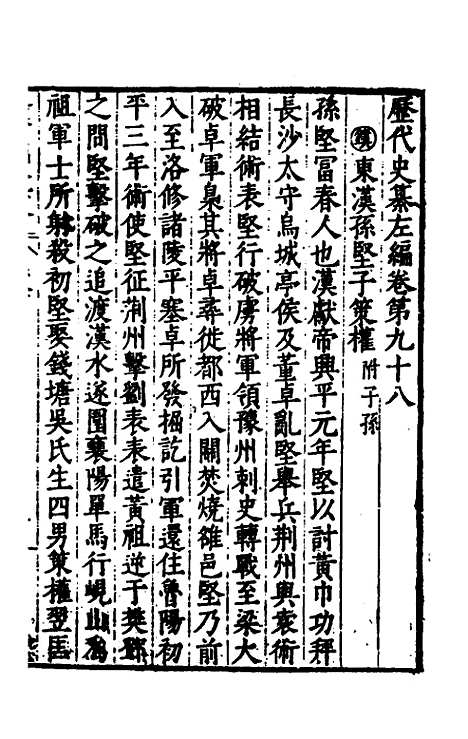 歷代史纂左編卷第九十八
鎮東漢孫堅子策權附子孫
孫堅冨春人也漢獻帝興平元年堅以討黃巾功拜
長沙太守烏城亭侯及董卓亂堅舉兵荆州與袁術
相結術表堅行破虜將軍領豫州刺史轉戰至梁大
破卓軍梟其將卓尋徙都西入關焚燒雒邑堅乃前
入至洛修諸陵平塞卓所發掘訖引軍還住魯陽初
平三年術使堅征荆州擊劉表表遣黃祖逆于樊鄧
之間堅擊破之追渡漢水遂圍襄陽單馬行峴山為
祖軍士所射殺初堅娶錢塘吳氏生四男策權翌匡